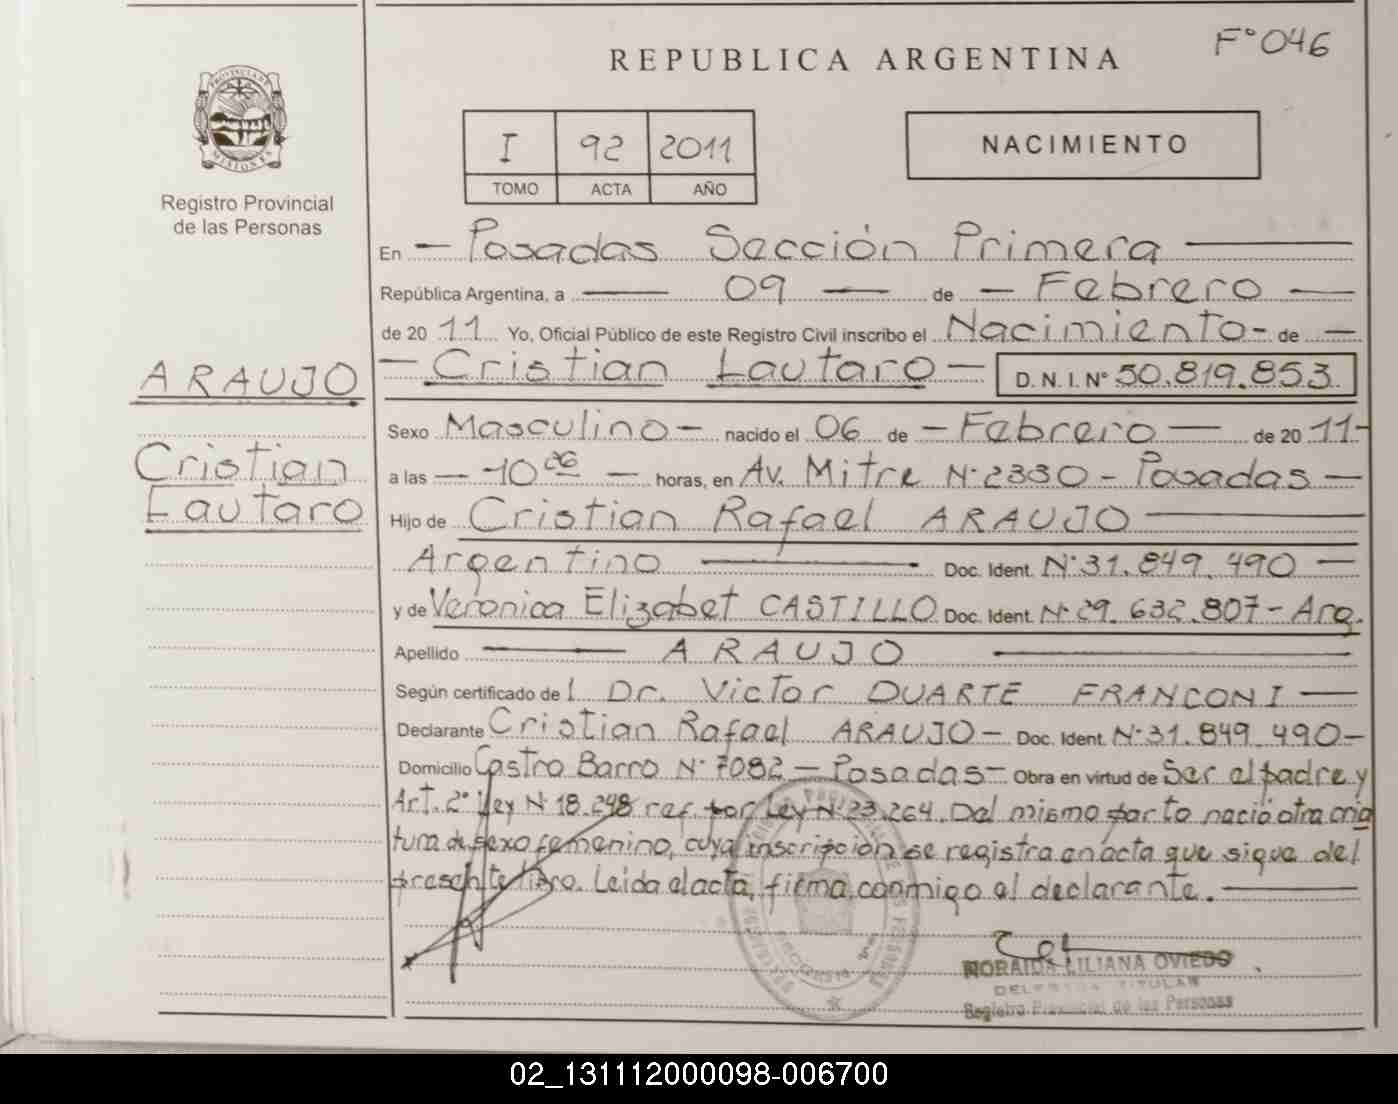 F° 046
REPUBLICA ARGENTINA
PROVINCIA DE
MISIONES
Registro Provincial
de las Personas
I 92 2011
TOMO ACTA AÑO
NACIMIENTO
En Posadas Sección Primera
República Argentina, a 09 de Febrero
de 2011 Yo, Oficial Público de este Registro Civil inscribo el Nacimiento de
Cristian Lautaro D.N.I.N° 50.819.853
ARAUJO
Cristian
Lautaro
Sexo Masculino nacido el 06 de Febrero de 2011
a las 10 06 horas, en Av. Mitre N° 2330 - Posadas
Hijo de Cristian Rafael ARAUJO
Argentino Doc. Ident. N° 31.849.490
y de Veronica Elizabet CASTILLO Doc. Ident. N° 29.632.807 - Arg.
Apellido ARAUJO
Según certificado del Dr. Victor DUARTE FRANCONI
Declarante Cristian Rafael ARAUJO - Doc. Ident. N° 31.849.490
Domicilio Castro Barro N° 7082 - Posadas - Obra en virtud de Ser el padre y
Art. 2° Ley N° 18.248 ref. por Ley N° 23.264. Del mismo parto nació otra cria
tura de sexo femenino, cuya inscripción se registra en acta que sigue del
presente libro. Leida el acta, firma conmigo el declarante.
NORAIDA LILIANA OVIEDO
DELEGADA TITULAR
Registro Provincial de las Personas
02_131112000098-006700